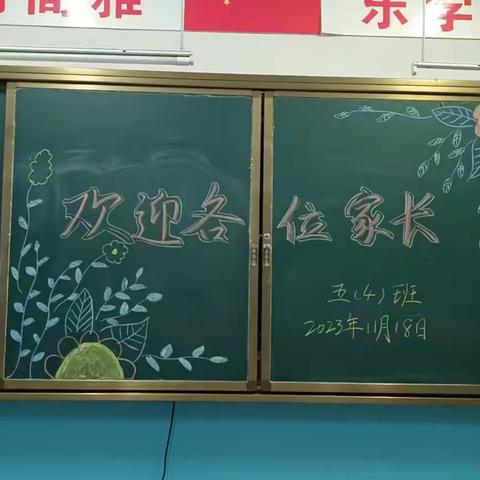 雅 乐学
欢迎各位家长
五(4)班
2023年11月18日